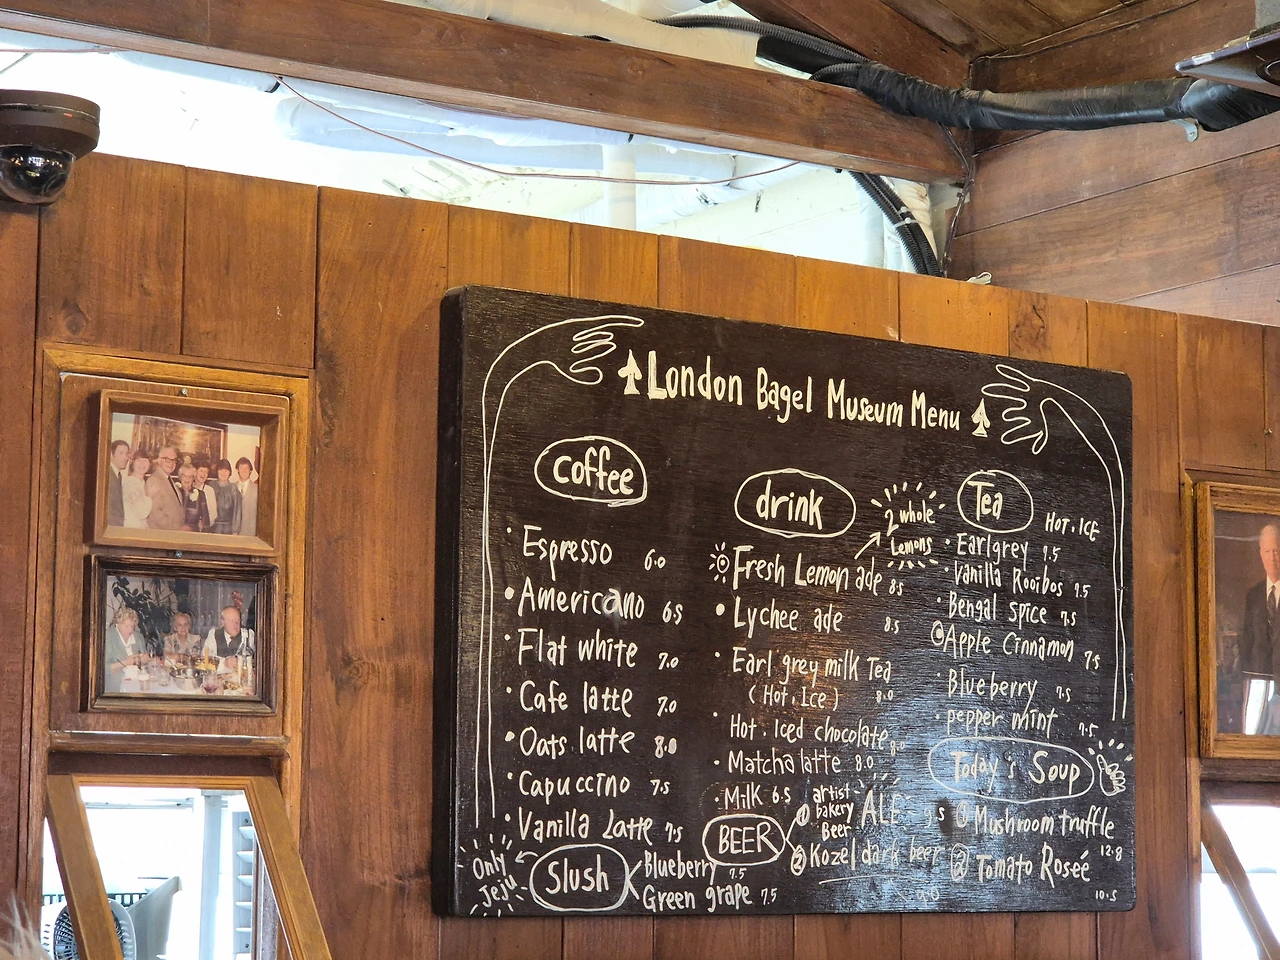 London Bagel Museum Menu
coffee
Espresso 6.0
Americano 6.5
Flat white 7.0
Cafe latte 7.0
Oats latte 8.0
Capuccino 7.5
Vanilla Latte 7.5
Only Jeju
Slush
Blueberry 7.5
Green grape 7.5
drink
2 whole
Lemons
Fresh Lemon ade 8.5
Lychee ade 8.5
Earl grey milk Tea
(Hot. Ice) 8.0
Hot. Iced chocolate 8.0
Matcha latte 8.0
Milk 6.5
BEER
① artist bakery Beer ALE 9.5
② Kozel dark beer
9.0
Tea
HOT. ICE
Earlgrey 7.5
Vanilla Rooibos 7.5
Bengal Spice 7.5
Apple Cinnamon 7.5
Blueberry 7.5
pepper mint 7.5
Today's Soup
① Mushroom truffle
12.8
② Tomato Roseé
10.5